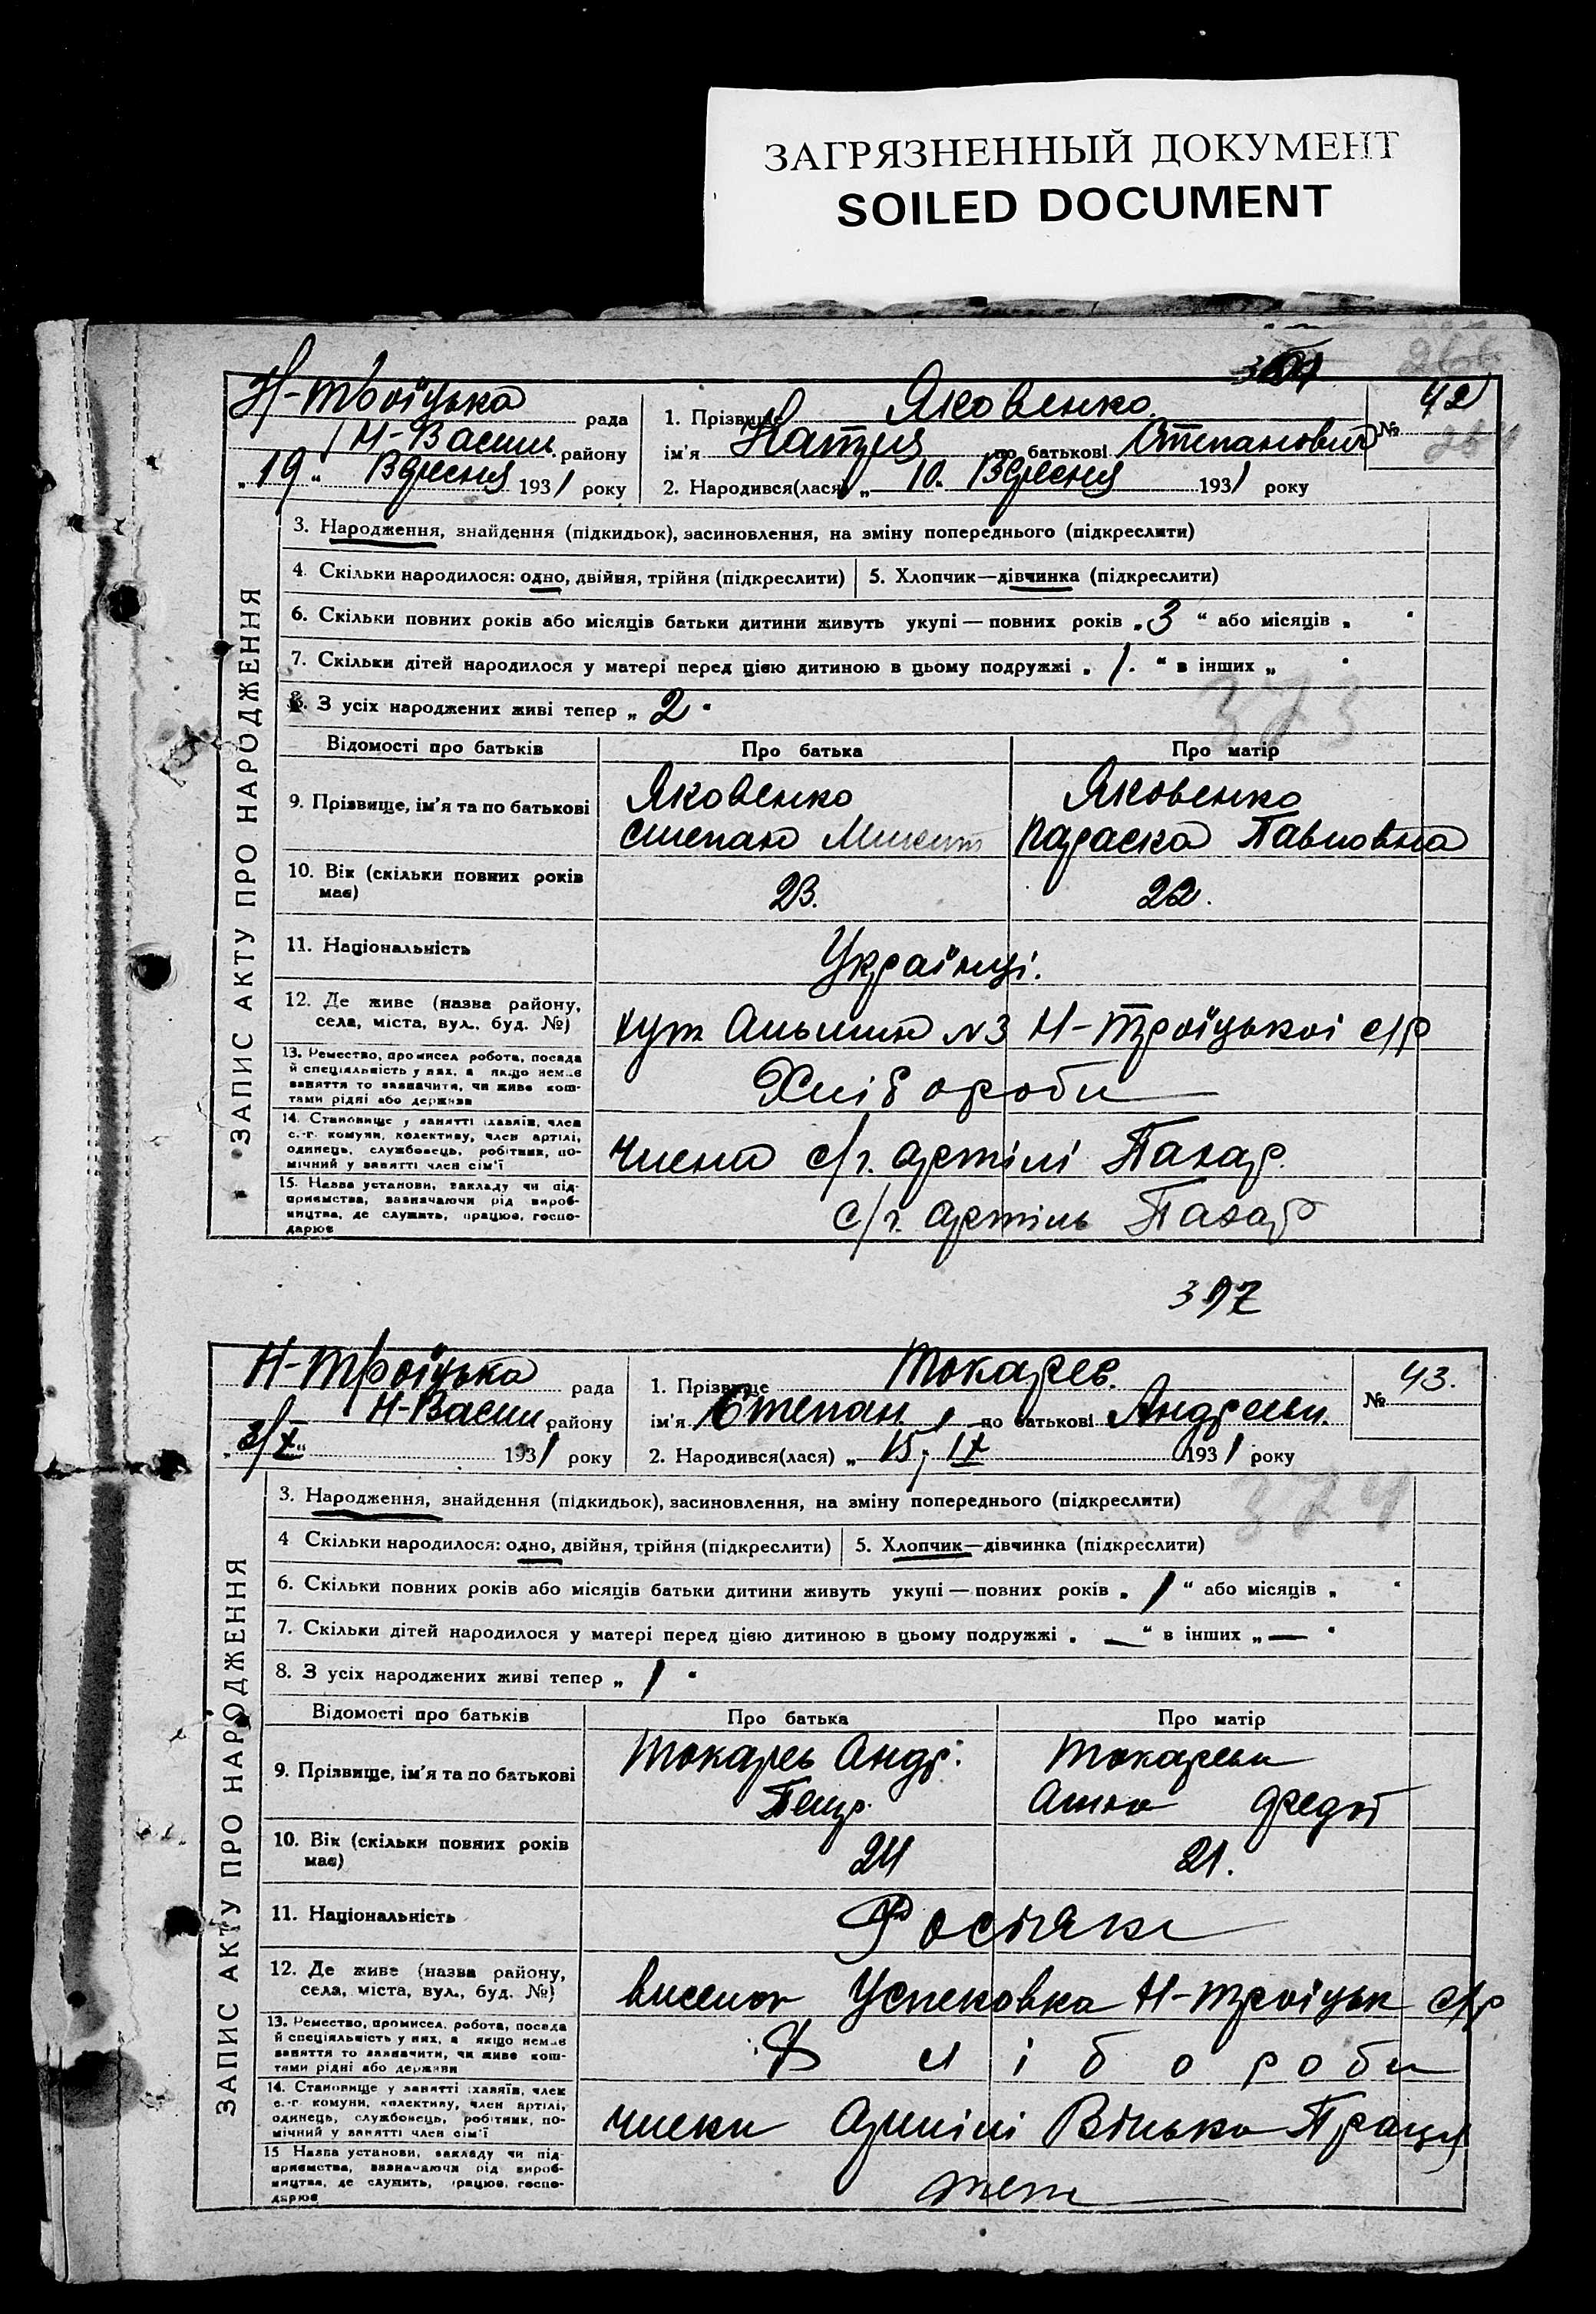 ЗАГРЯЗНЕННЫЙ ДОКУМЕНТ
SOILED DOCUMENT
Н-Троїцька рада
Н-Васил. району
„19“ Вересня 1931 року
1. Прізвище Яковенко
ім'я Натуся по батькові Степанович
2. Народився(лася) „10. Вересня 1931 року
№ 42
ЗАПИС АКТУ ПРО НАРОДЖЕННЯ
3. Народження, знайдення (підкидьок), засиновлення, на зміну попереднього (підкреслити)
4. Скільки народилося: одно, двійня, трійня (підкреслити) 5. Хлопчик—дівчинка (підкреслити)
6. Скільки повних років або місяців батьки дитини живуть укупі — повних років „3“ або місяців „
7. Скільки дітей народилося у матері перед цією дитиною в цьому подружжі „1.“ в інших „
373
8. З усіх народжених живі тепер „2“
Відомості про батьків Про батька Про матір
9. Прізвище, ім'я та по батькові Яковенко Яковенко
Степан Микит Параска Павловна
10. Вік (скільки повних років має) 23. 22.
11. Національність Українці.
12. Де живе (назва району, села, міста, вул., буд. №) хут №3 Н-Троїцькоі с/р
13. Ремество, промисел, робота, посада й спеціяльність у них, а якщо немає заняття то зазначити, чи живе коштами рідні або держави Хлібороби
14. Становище у занятті: хазяїн, член с.-г. комуни, колективу, член артілі, одинець, службовець, робітник, помічний у занятті член сім'ї Члена с/г. артілі Пахар.
15. Назва установи, закладу чи підприємства, зазначаючи рід виробництва, де служить, працює, господарює с/г. артіль Пахар
397
Н-Троїцька рада
Н-Васил району
„3/X“ 1931 року
1. Прізвище Токарев.
ім'я Степан по батькові Андреев.
2. Народився(лася) „15/IX 1931 року
№ 43.
374
ЗАПИС АКТУ ПРО НАРОДЖЕННЯ
3. Народження, знайдення (підкидьок), засиновлення, на зміну попереднього (підкреслити)
4 Скільки народилося: одно, двійня, трійня (підкреслити) 5. Хлопчик—дівчинка (підкреслити)
6. Скільки повних років або місяців батьки дитини живуть укупі — повних років „1“ або місяців „
7. Скільки дітей народилося у матері перед цією дитиною в цьому подружжі „—“ в інших „—“
8. З усіх народжених живі тепер „1“
Відомості про батьків Про батька Про матір
9. Прізвище, ім'я та по батькові Токарев Андр. Токарева
Петр. Анна Федот
10. Вік (скільки повних років має) 24 21.
11. Національність Росіяне
12. Де живе (назва району, села, міста, вул., буд. №) виселок Успеновка Н-Троіцьк с/р
13. Ремество, промисел, робота, посада й спеціяльність у них, а якщо немає заняття то зазначити, чи живе коштами рідні або держави Хлібороби
14. Становище у занятті: хазяїн, член с.-г. комуни, колективу, член артілі, одинець, службовець, робітник, помічний у занятті член сім'ї члени Артілі Вільна Праця
15 Назва установи, закладу чи підприємства, зазначаючи рід виробництва, де служить, працює, господарює теж